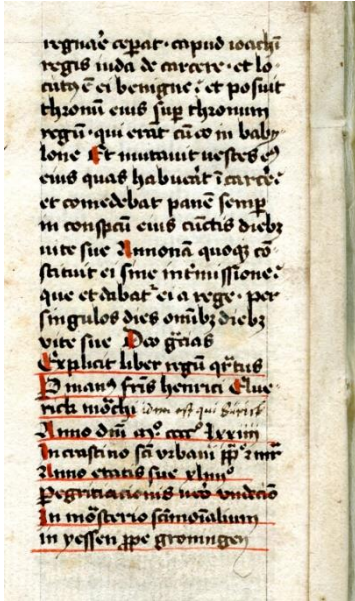 regnaꝛ̄e ceperat · capud ioachī
regis iuda de carcere · et lo
cutꝯ ē ei benigne · et posuit
thronū eius suꝑ thronum
regū · qui erat cū eo in baby
lone Et mutavit vestes eꝯ
eius quas habuerāt ī carcere
et comedebat panē semꝑ
in conspcū eius cūctis diebꝫ
vite sue Annonam quoqꝫ cō
stituit ei sine int̄missione
que et dabat᷑ ei a rege · per
singulos dies omībꝫ diebꝫ
vite sue Deo gr̄as
Explicit liber regū qr̄tus
P manꝯ fr̄is henrici Clue
rick mōchi idem est qui
Anno dn̄i mº ccccº lxxiiii
In crastino sc̄i vrbani pp̄ ⁊ mr̄
Anno etatis sue xliiiiº
ꝑegrinacionis vero vndecīo
In mōsterio sc̄imoīalium
in yessen ꝓpe groningen